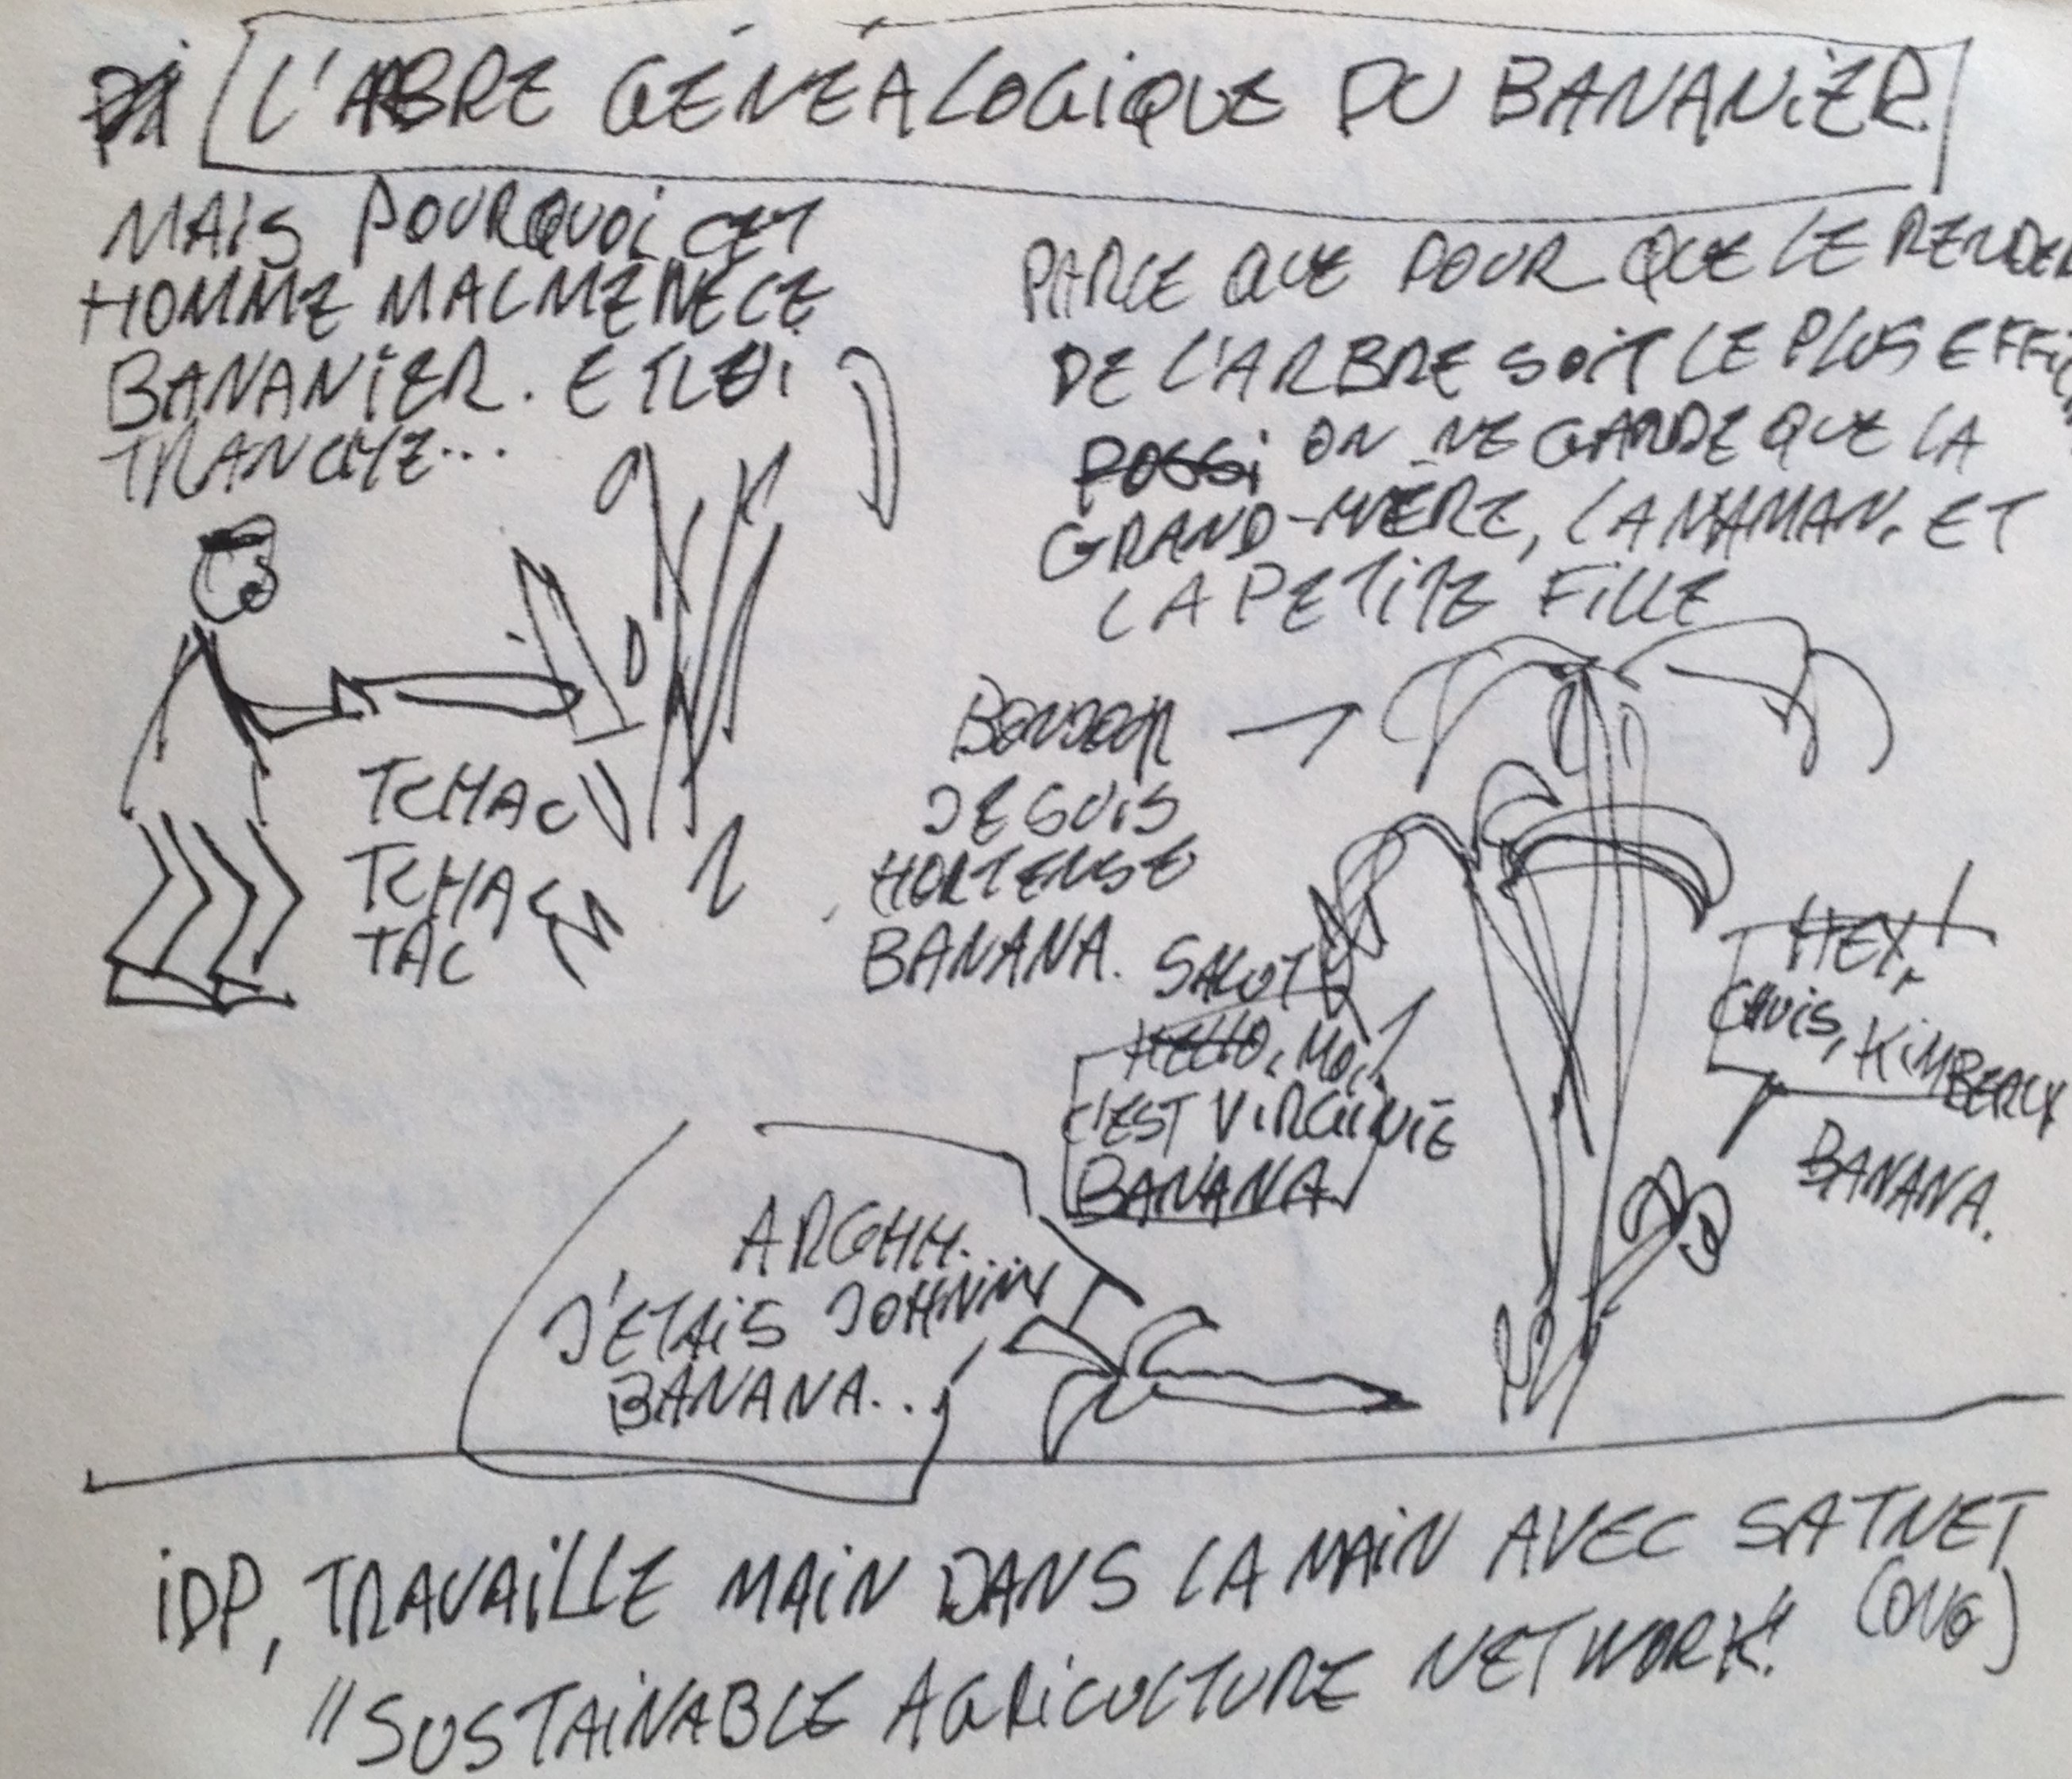 L'ABRE GÉNÉALOGIQUE DU BANANIER
MAIS POURQUOI CET
HOMME MALMÈNE CE
BANANIER. ET LUI
TRANCHE...
PARCE QUE POUR QUE LE
DE L'ARBRE SOIT LE PLUS
POSSI ON NE GARDE QUE LA
GRAND-MÈRE, LA MAMAN. ET
LA PETITE FILLE
TCHAC
TCHAC
TAC
BONJOUR
JE SUIS
HORTENSE
BANANA.
SALUT
HELLO, MOI,
C'EST VIRGINIE
BANANA
HEY!
KIMBERLY
BANANA.
ARGHH...
J'ETAIS JOHNNY
BANANA...
IDP, TRAVAILLE MAIN DANS LA MAIN AVEC SATNET
(ONG)
"SUSTAINABLE AGRICULTURE NETWORK"